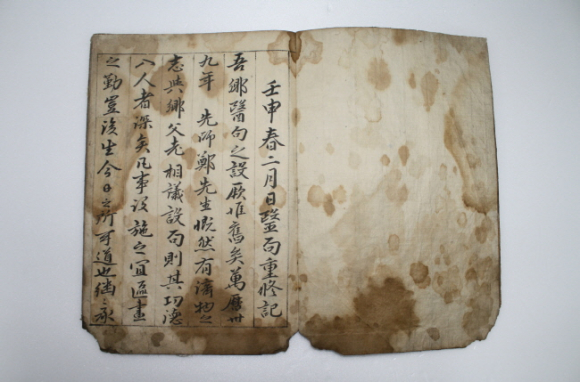 壬申春二月日醫局重修記
吾鄉醫局之設厥惟舊矣萬曆卅
九年先師鄭先生慨然有濟物之
志與鄉父老相議設局則其功德
入人者深矣凡事設施之宜區畫
之勤豈後生今日之所可道也繼之承